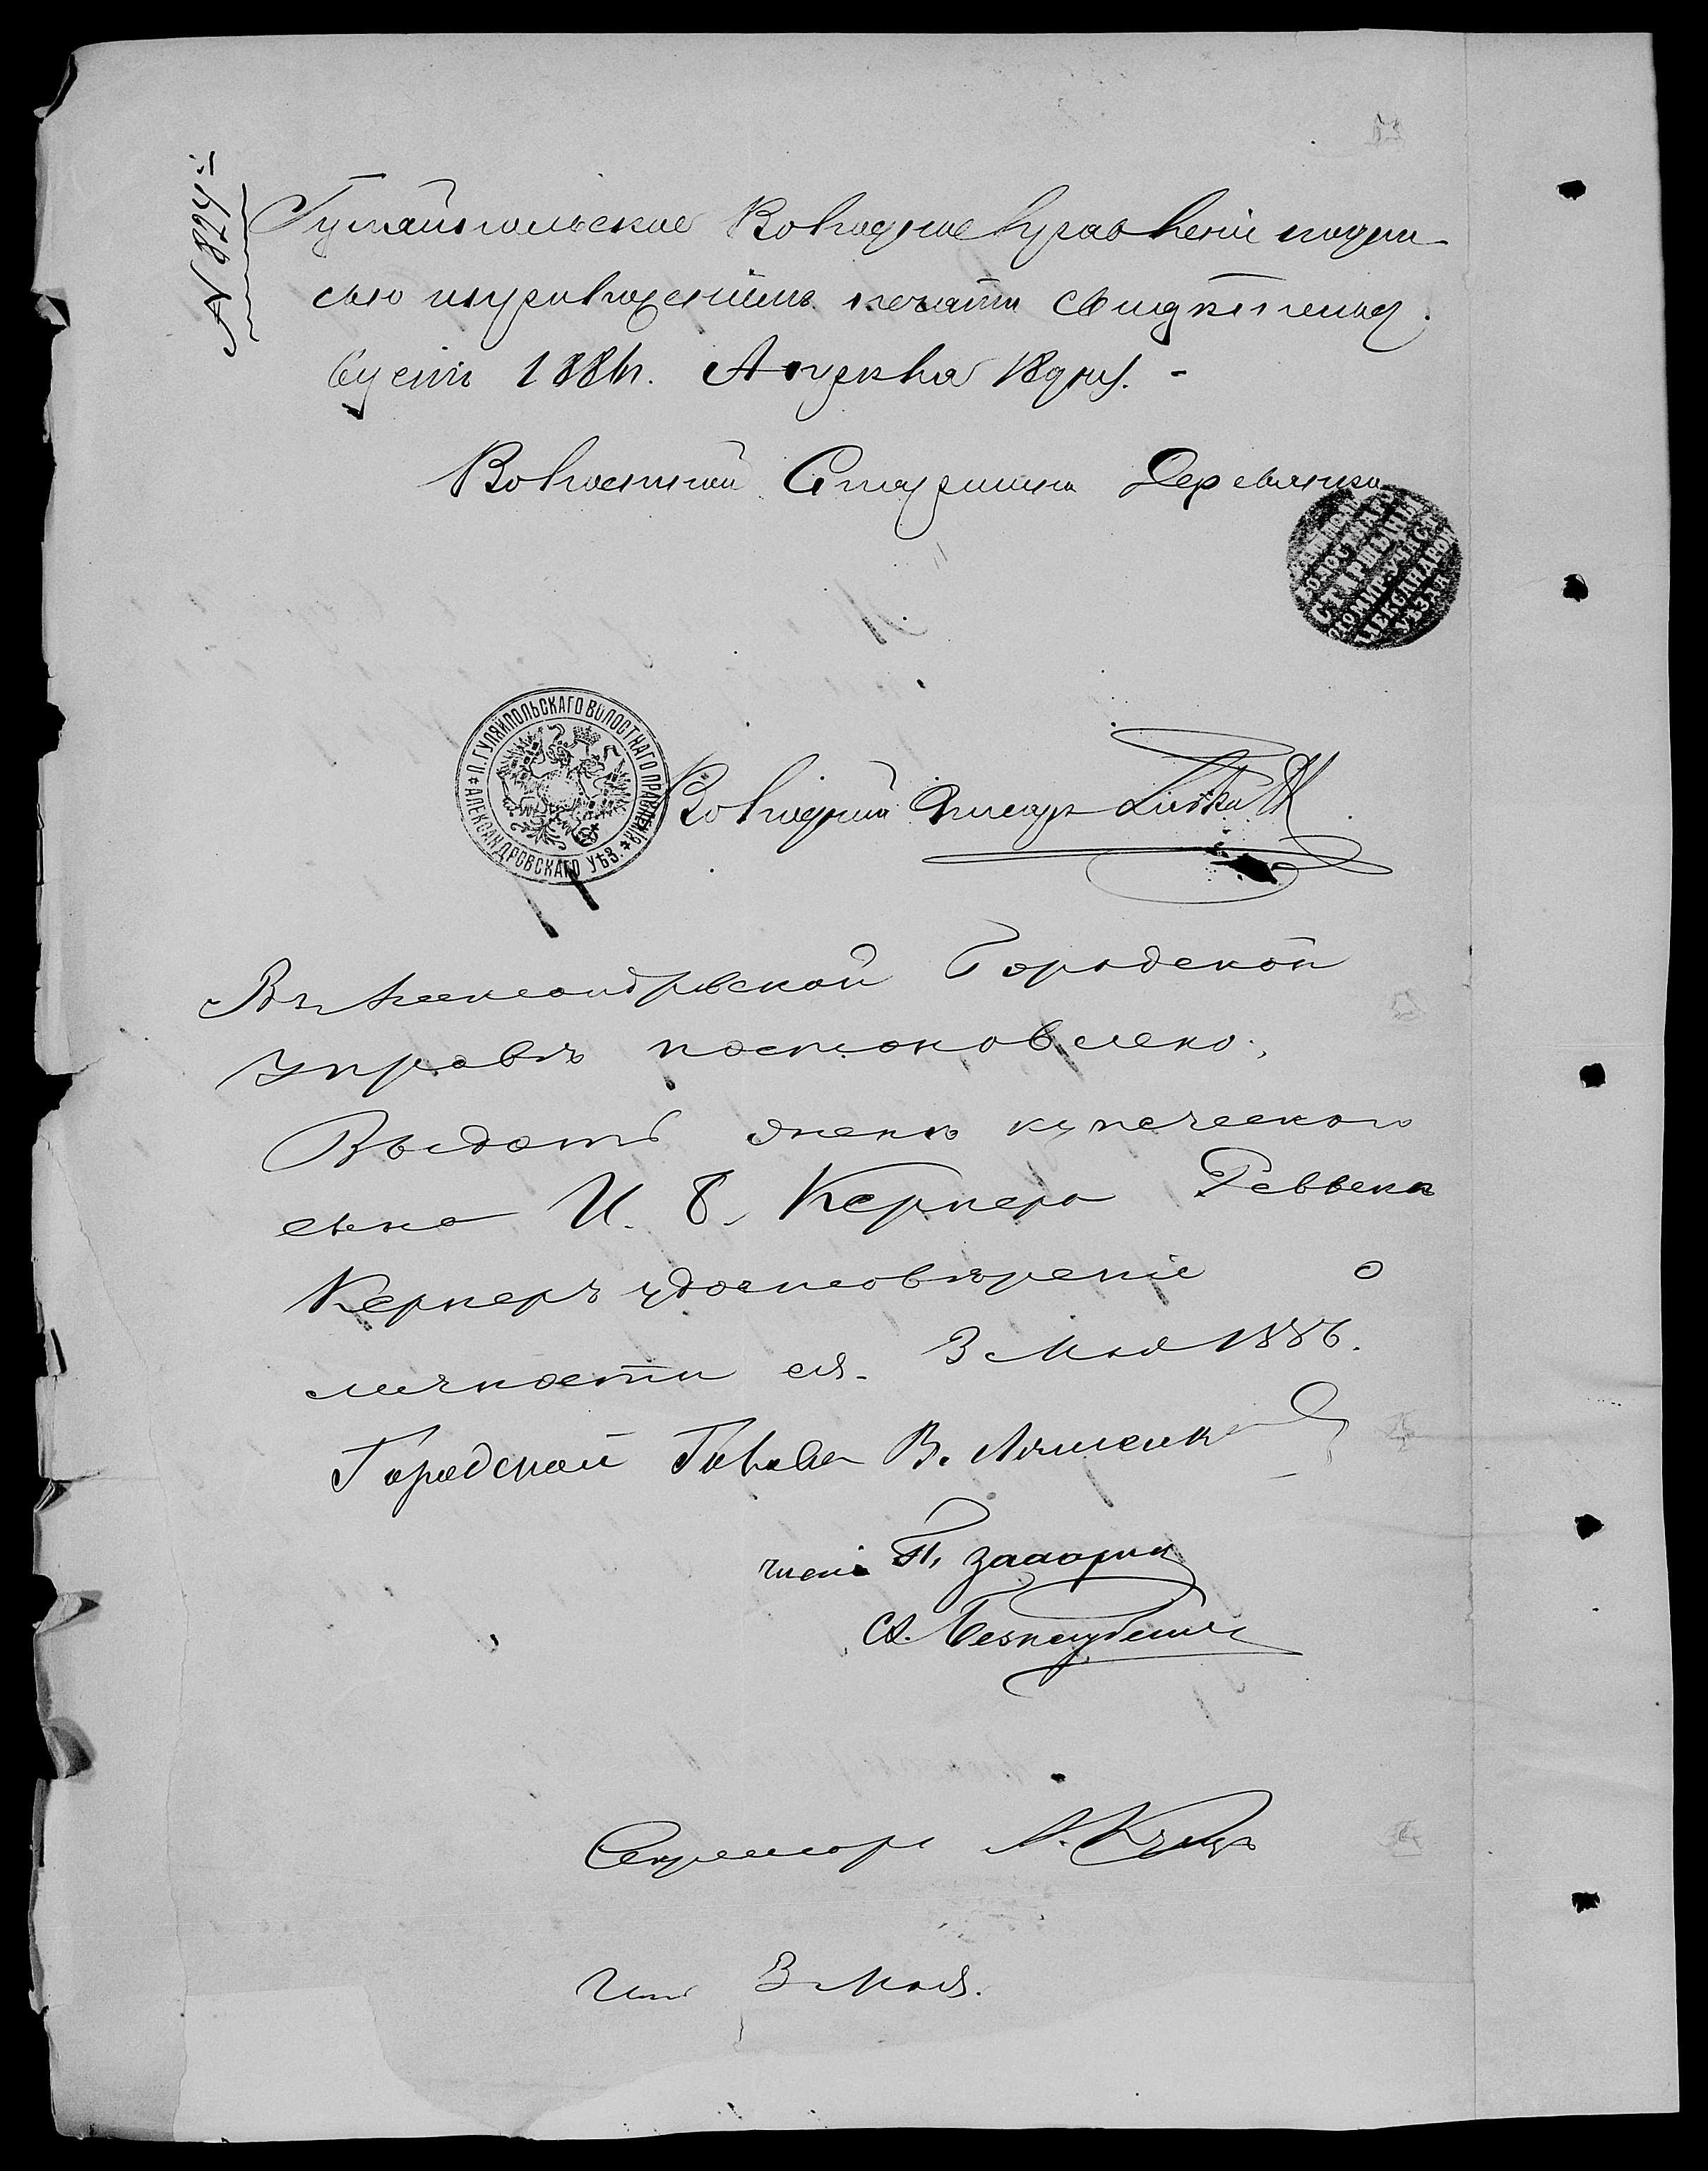 № 8294
Гуляйпольское Волостное Правленіе подпи-
сью и приложеніемъ печати свидѣтель-
ствуетъ 1886 г. Апрѣля 18 дня. -
Волостной Старшина Деревянко
ВОЛОСТНАГО
СТАРШЫНЫ
МИР. УЧАСТ
АЛЕКСАНДРОВ
УѢЗДА
П. ГУЛЯЙПОЛЬСКАГО ВОЛОСТНАГО ПРАВЛЕНІЯ
АЛЕКСАНДРОВСКАГО УѢЗ.
Волостной Писарь
Въ Александровской Городской
Управѣ постановлено:
Выдать женѣ купеческаго
сына И. Б. Кернера Реввекѣ
Кернеръ удостовѣреніе о
личности ея. 3 Мая 1886.
Городской Голова В. Ляшенко
члены П. Захарин
Секретарь
Исп 3 Мая.